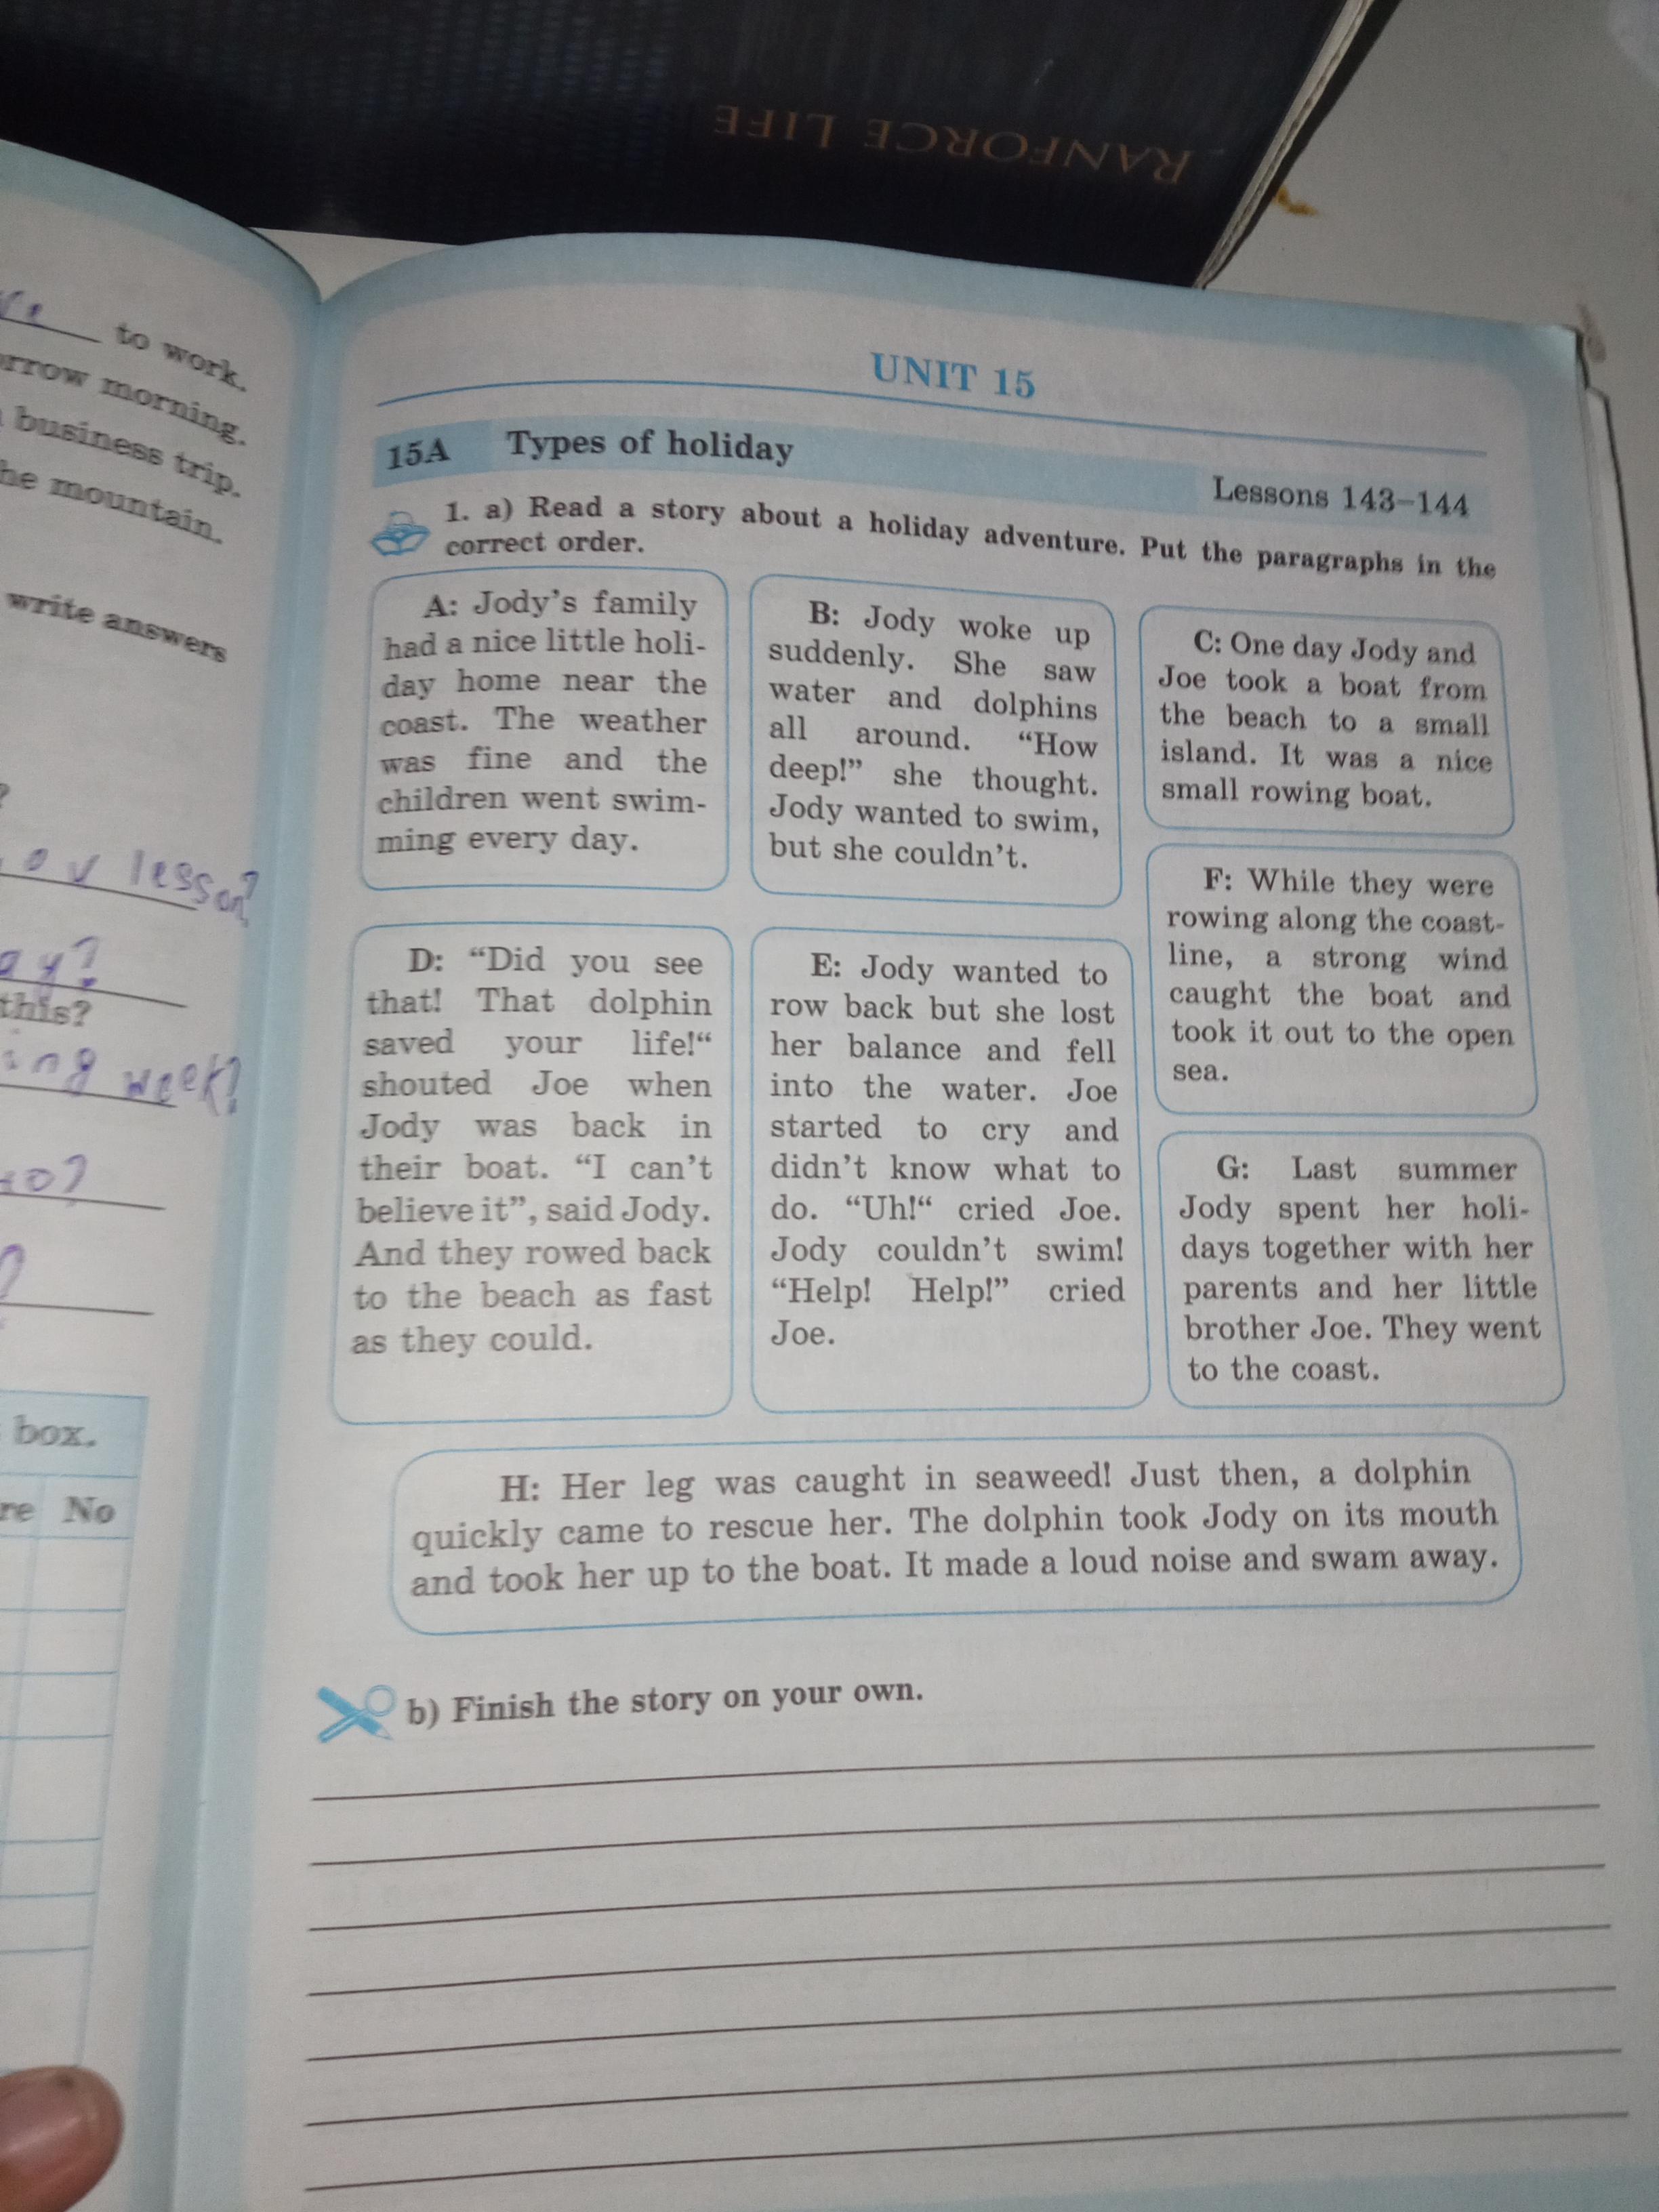 RANFORCE LIFE
to work.
rrow morning.
business trip.
he mountain.
write answers
?
lesson?
ay?
this?
ing week?
?
box.
re No
UNIT 15
15A Types of holiday
Lessons 143–144
1. a) Read a story about a holiday adventure. Put the paragraphs in the
correct order.
A: Jody's family
had a nice little holi-
day home near the
coast. The weather
was fine and the
children went swim-
ming every day.
B: Jody woke up
suddenly. She saw
water and dolphins
all around. "How
deep!" she thought.
Jody wanted to swim,
but she couldn't.
C: One day Jody and
Joe took a boat from
the beach to a small
island. It was a nice
small rowing boat.
D: "Did you see
that! That dolphin
saved your life!“
shouted Joe when
Jody was back in
their boat. "I can't
believe it", said Jody.
And they rowed back
to the beach as fast
as they could.
E: Jody wanted to
row back but she lost
her balance and fell
into the water. Joe
started to cry and
didn't know what to
do. "Uh!“ cried Joe.
Jody couldn't swim!
"Help! Help!" cried
Joe.
F: While they were
rowing along the coast-
line, a strong wind
caught the boat and
took it out to the open
sea.
G: Last summer
Jody spent her holi-
days together with her
parents and her little
brother Joe. They went
to the coast.
H: Her leg was caught in seaweed! Just then, a dolphin
quickly came to rescue her. The dolphin took Jody on its mouth
and took her up to the boat. It made a loud noise and swam away.
b) Finish the story on your own.